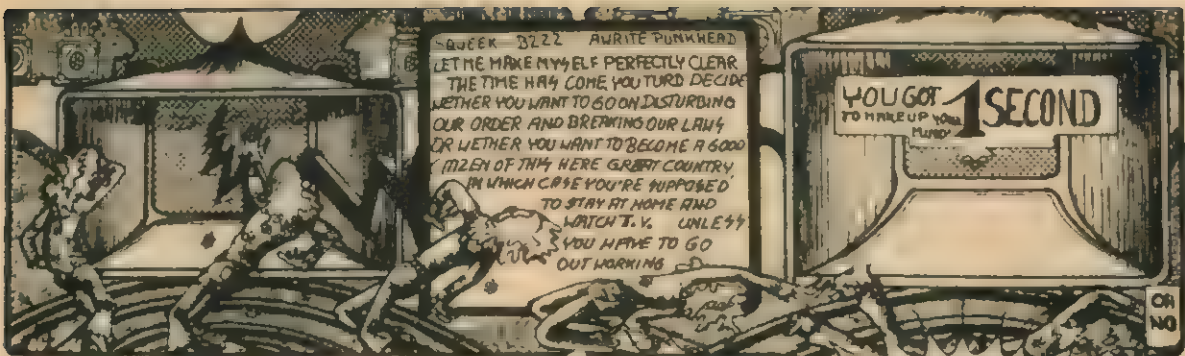 SQUEEK BZZZ AWRITE PUNKHEAD
LET ME MAKE MYSELF PERFECTLY CLEAR
THE TIME HAS COME YOU TURD DECIDE
WETHER YOU WANT TO GO ON DISTURBING
OUR ORDER AND BREAKING OUR LAWS
OR WETHER YOU WANT TO BECOME A GOOD
ITIZEN OF THIS HERE GREAT COUNTRY
IN WHICH CASE YOU'RE SUPPOSED
TO STAY AT HOME AND
WATCH T.V. UNLESS
YOU HAVE TO GO
OUT WORKING
YOU GOT 1 SECOND
TO MAKE UP YOUR
MIND
OH
NO